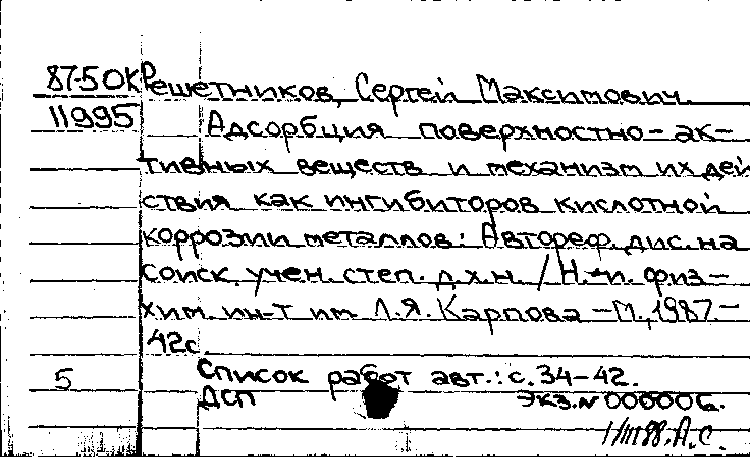 87-5 ОК Решетников, Сергей Максимович.
11995 Адсорбция поверхностно-ак-
тивных веществ и механизм их дей
ствия как ингибиторов кислотной
коррозии металлов: Автореф. дис. на
соиск. учен. степ. д.х.н. / Н.-и. физ-
хим. ин-т им. Л.Я. Карпова -М., 1987.-
42с.
5 Список работ авт.: с. 34-42.
ДСП экз. N 000006.
88. А.С.